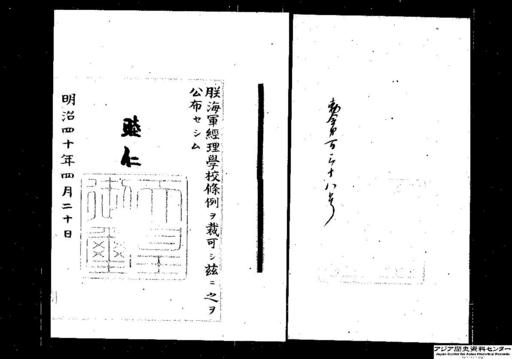 勅令第百二十八号
朕海軍經理學校條例ヲ裁可シ茲ニ之ヲ
公布セシム
睦仁
明治四十年四月二十日
アジア歴史資料センター
Japan Center for Asian Historical Records